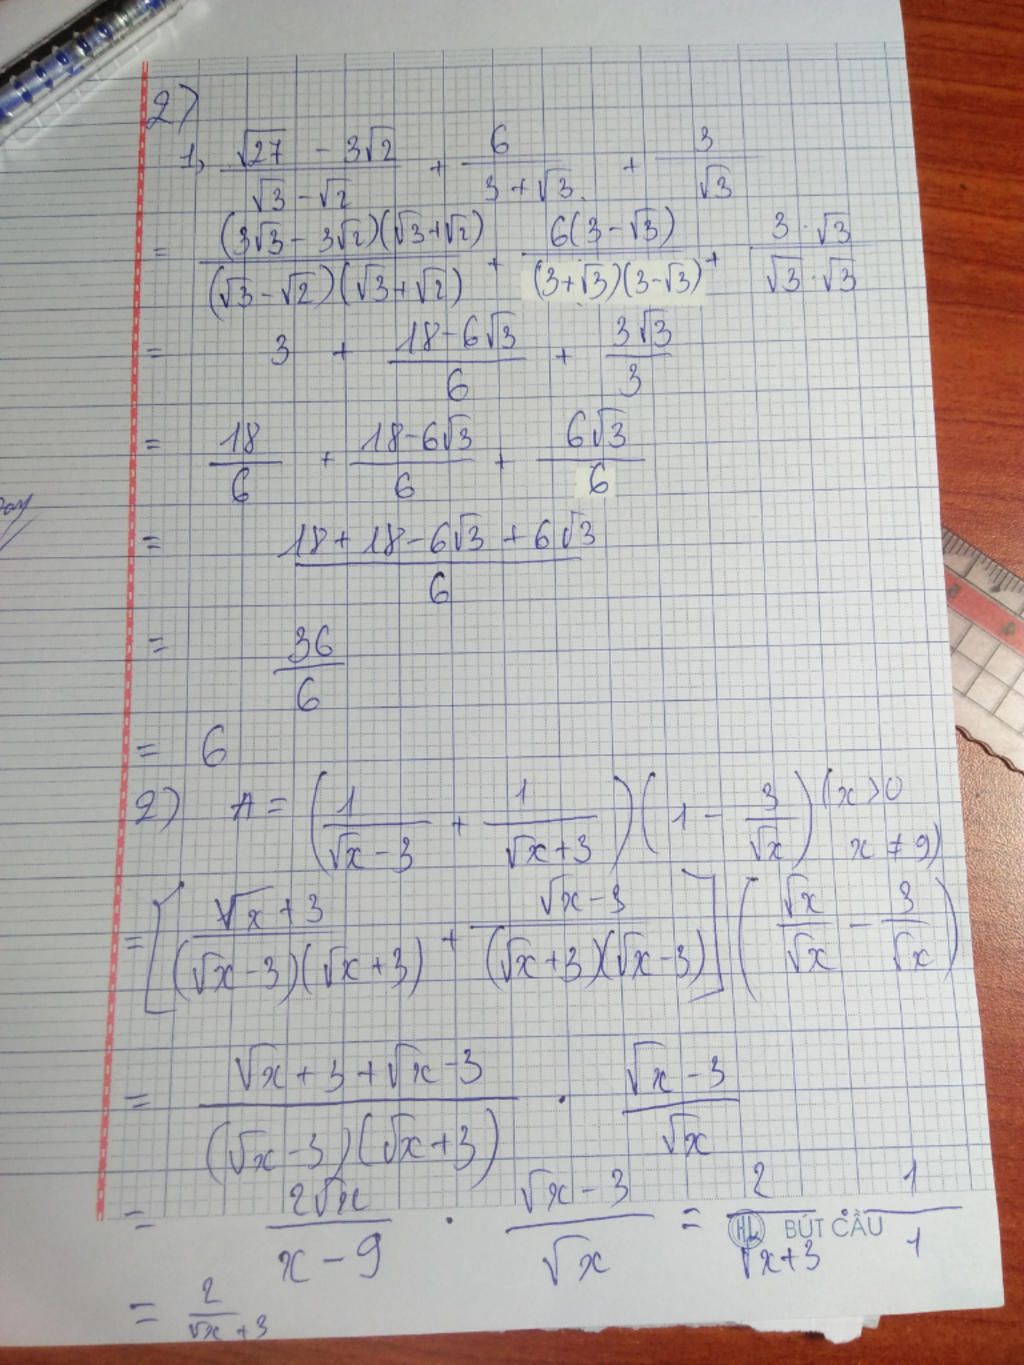 2)
1, (√27 - 3√2)/(√3 - √2) + 6/(3 + √3) + 3/√3
= (3√3 - 3√2)(√3+√2)/(√3-√2)(√3+√2) + 6(3-√3)/(3+√3)(3-√3) + 3·√3/√3·√3
= 3 + (18-6√3)/6 + 3√3/3
= 18/6 + (18-6√3)/6 + 6√3/6
= (18+18-6√3+6√3)/6
= 36/6
= 6
2) A = (1/(√x-3) + 1/(√x+3))(1 - 3/√x) (x>0
x ≠ 9)
= [(√x+3)/(√x-3)(√x+3) + (√x-3)/(√x+3)(√x-3)](√x/√x - 3/√x)
= (√x+3+√x-3)/(√x-3)(√x+3) · (√x-3)/√x
= 2√x/(x-9) · (√x-3)/√x = 2/(√x+3) · 1/1
HL BÚT CẦU
= 2/(√x+3)